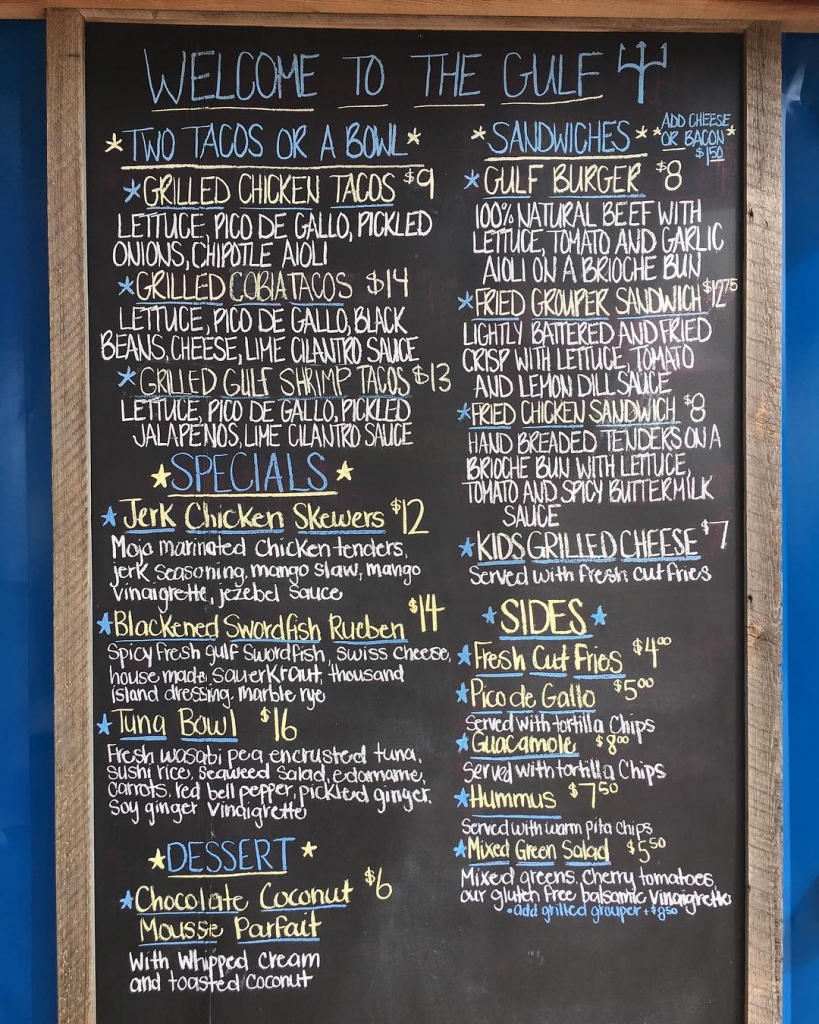 WELCOME TO THE GULF
TWO TACOS OR A BOWL
GRILLED CHICKEN TACOS $9
LETTUCE, PICO DE GALLO, PICKLED
ONIONS, CHIPOTLE AIOLI
GRILLED COBIA TACOS $14
LETTUCE, PICO DE GALLO, BLACK
BEANS, CHEESE, LIME CILANTRO SAUCE
GRILLED GULF SHRIMP TACOS $13
LETTUCE, PICO DE GALLO, PICKLED
JALAPENOS, LIME CILANTRO SAUCE
SPECIALS
Jerk Chicken Skewers $12
Mojo marinated chicken tenders,
jerk seasoning, mango slaw, mango
vinaigrette, jezebel sauce
Blackened Swordfish Rueben $14
Spicy fresh gulf swordfish, swiss cheese,
house made sauerkraut, thousand
island dressing, marble rye
Tuna Bowl $16
Fresh wasabi pea encrusted tuna,
sushi rice, seaweed salad, edamame,
carrots, red bell pepper, pickled ginger,
soy ginger vinaigrette
DESSERT
Chocolate Coconut $6
Mousse Parfait
With whipped cream
and toasted coconut
SANDWICHES
ADD CHEESE
OR BACON
$1.50
GULF BURGER $8
100% NATURAL BEEF WITH
LETTUCE, TOMATO AND GARLIC
AIOLI ON A BRIOCHE BUN
FRIED GROUPER SANDWICH $12.75
LIGHTLY BATTERED AND FRIED
CRISP WITH LETTUCE, TOMATO
AND LEMON DILL SAUCE
FRIED CHICKEN SANDWICH $8
HAND BREADED TENDERS ON A
BRIOCHE BUN WITH LETTUCE,
TOMATO AND SPICY BUTTERMILK
SAUCE
KIDS GRILLED CHEESE $7
Served with fresh cut fries
SIDES
Fresh Cut Fries $4.00
Pico de Gallo $5.00
Served with tortilla chips
Guacamole $8.00
Served with tortilla chips
Hummus $7.50
Served with warm pita chips
Mixed Green Salad $5.50
Mixed greens, cherry tomatoes,
our gluten free balsamic vinaigrette
•add grilled grouper +$8.50